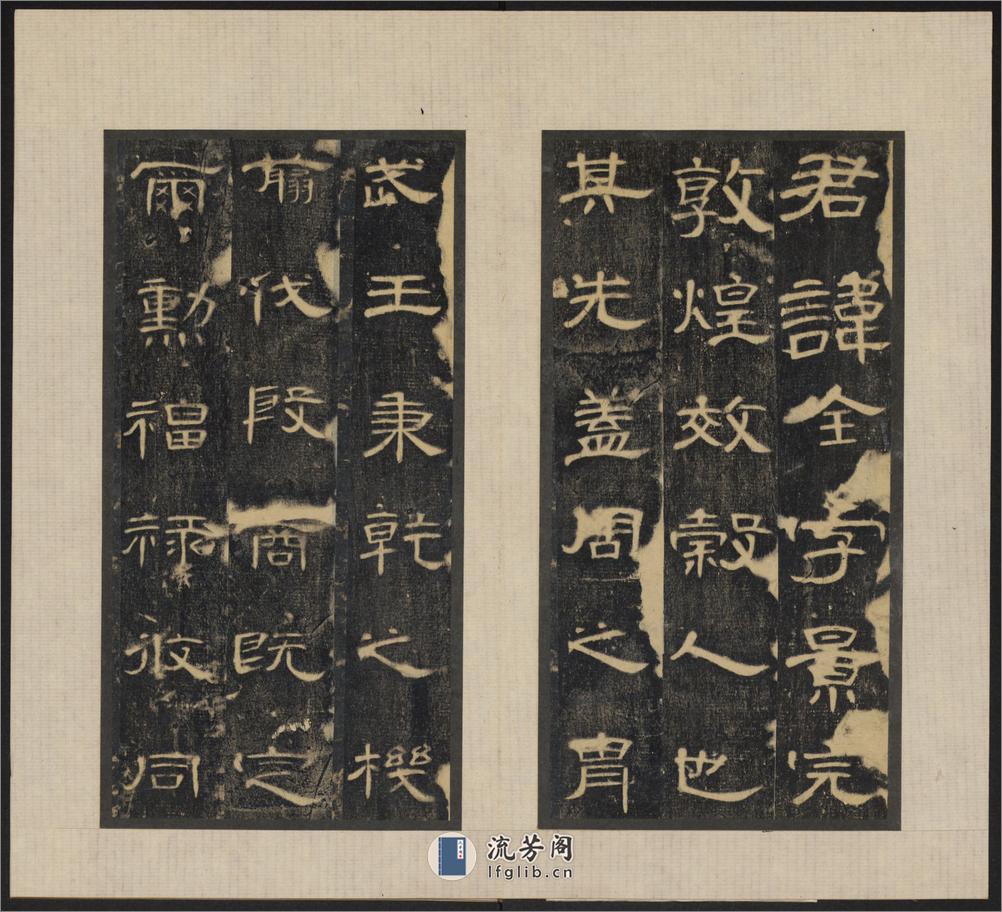 君諱全字景完
敦煌效穀人也
其先蓋周之胄
武王秉乾之機
翦伐殷商既定
爾勳福祿攸同
流芳阁
lfglib.cn